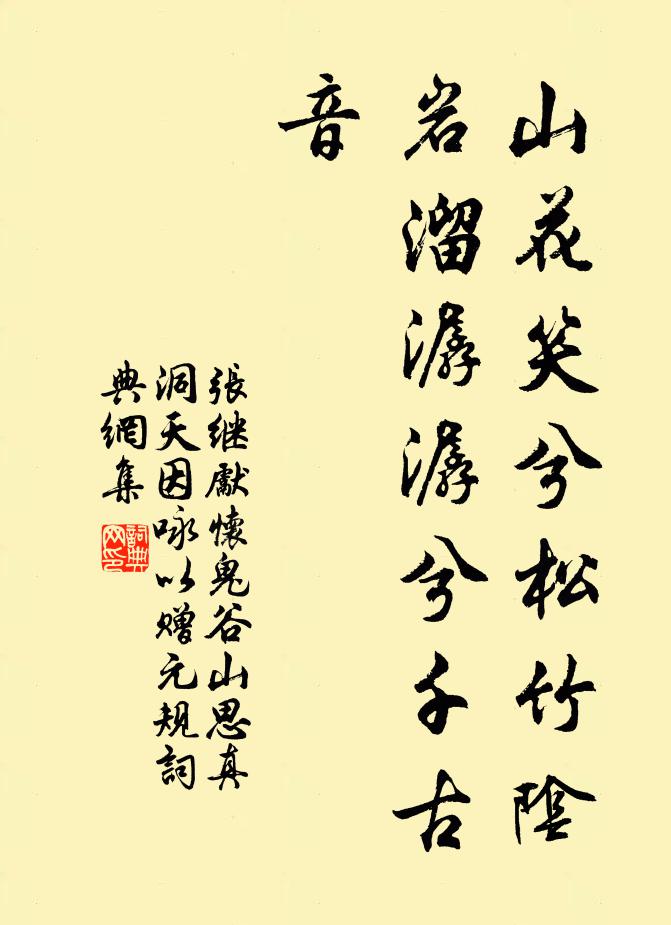 山花笑兮松竹陰
岩溜潺潺兮千古
音
張继獻懷鬼谷山思真
洞天因咏以赠元規詞
典網集
詞典
网印